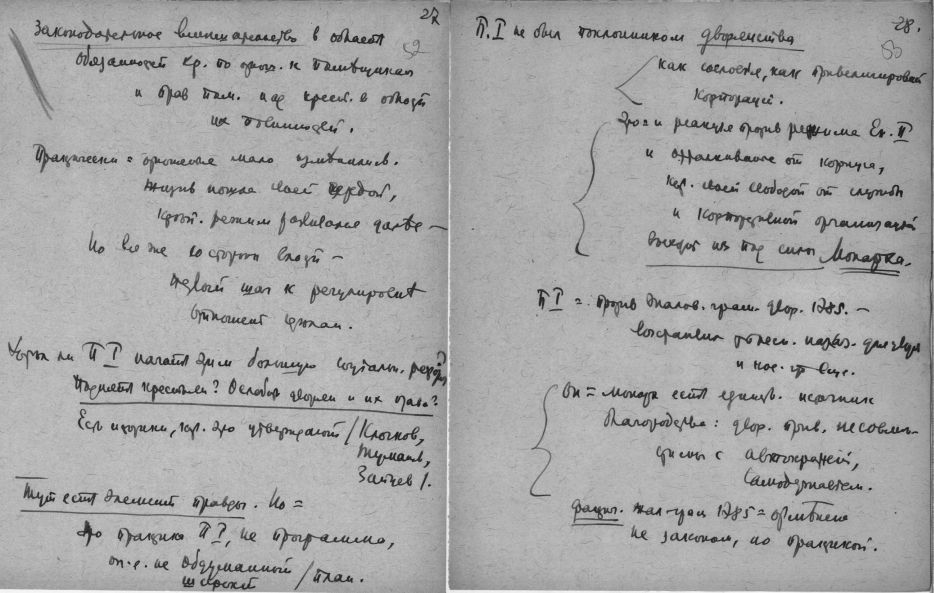 27
Законодательное вмешательство в области
52
обязанностей кр. по отнош. к помещикам
и прав пом. над крест. в области
их повинностей.
Практически = отношение мало изменилось.
Жизнь пошла своей чередой,
крепост. режим развивался далее –
Но все же со стороны власти –
первый шаг к
отношений
Хотел ли П I начать этим большую социальн. реформу?
Поднять крестьян? Ослабить дворян и их права?
Есть историки, кот. это утверждают / Клочков,
Шумаев,
Зайцев /.
Тут есть элемент правды. Но =
это практика П I, не программа,
он-е. не обдуманный / план.
широкий
28.
53
П. I не был поклонником дворянства
как сословия, как привелигированной
корпораций.
Это = и реакция против режима Ек. II
и отталкивание от корпуса,
кот. своей свободой от службы
и корпоративной организацией
выходит из под силы Монарха.
П I = против жалов. грам. двор. 1785. –
восстановил телесн. наказ. для двор
и нов. гр
Он = монарх есть единств. источник
благородства: двор. прив. несовме-
стимы с автократией,
Самодержавием.
Фактич. жал-грам 1785 = отменена
не законом, но практикой.